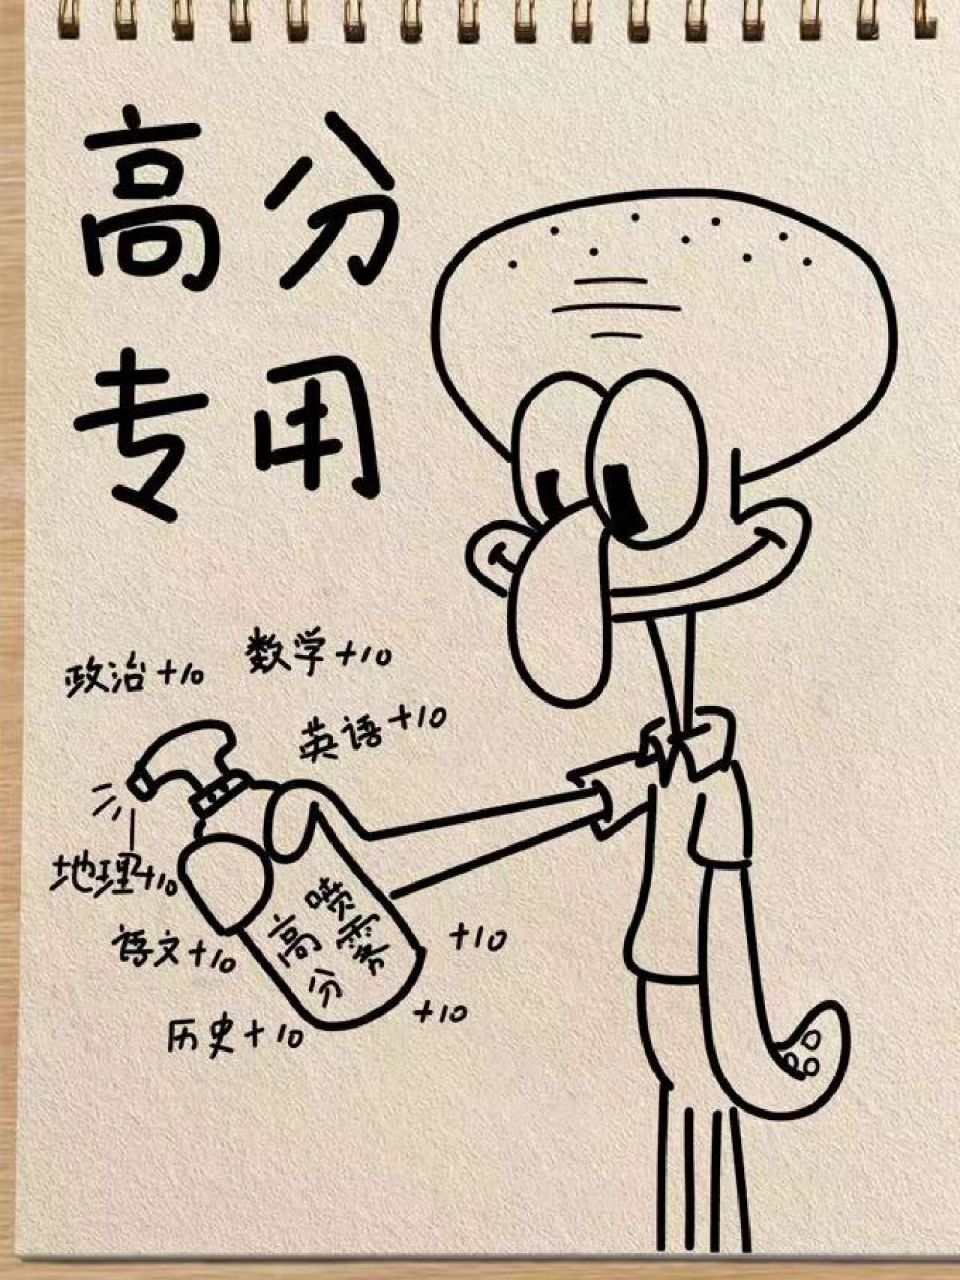 高分
专用
政治+10
数学+10
英语+10
地理+10
语文+10
历史+10
高分
喷雾
+10
+10